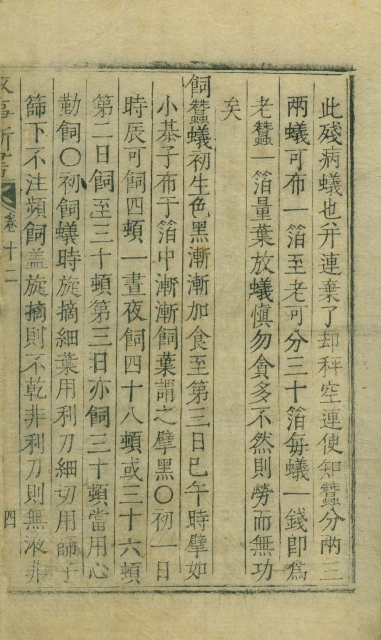 此殘病蟻也并連棄了却秤空連使知蠶分兩三
兩蟻可布一箔至老可分三十箔每蟻一錢卽爲
老蠶一箔量葉放蟻愼勿貪多不然則勞而無功
矣
飼蠶蟻初生色黑漸漸加食至第三日巳午時擘如
小棊子布于箔中漸漸飼葉謂之擘黑○初一日
時辰可飼四頓一晝夜飼四十八頓或三十六頓
第二日飼至三十頓第三日亦飼三十頓當用心
勤飼○初飼蟻時旋摘細葉用利刀細切用篩子
篩下不注頻飼盖旋摘則不乾非利刀則無液非
攷事新書 卷十二 四